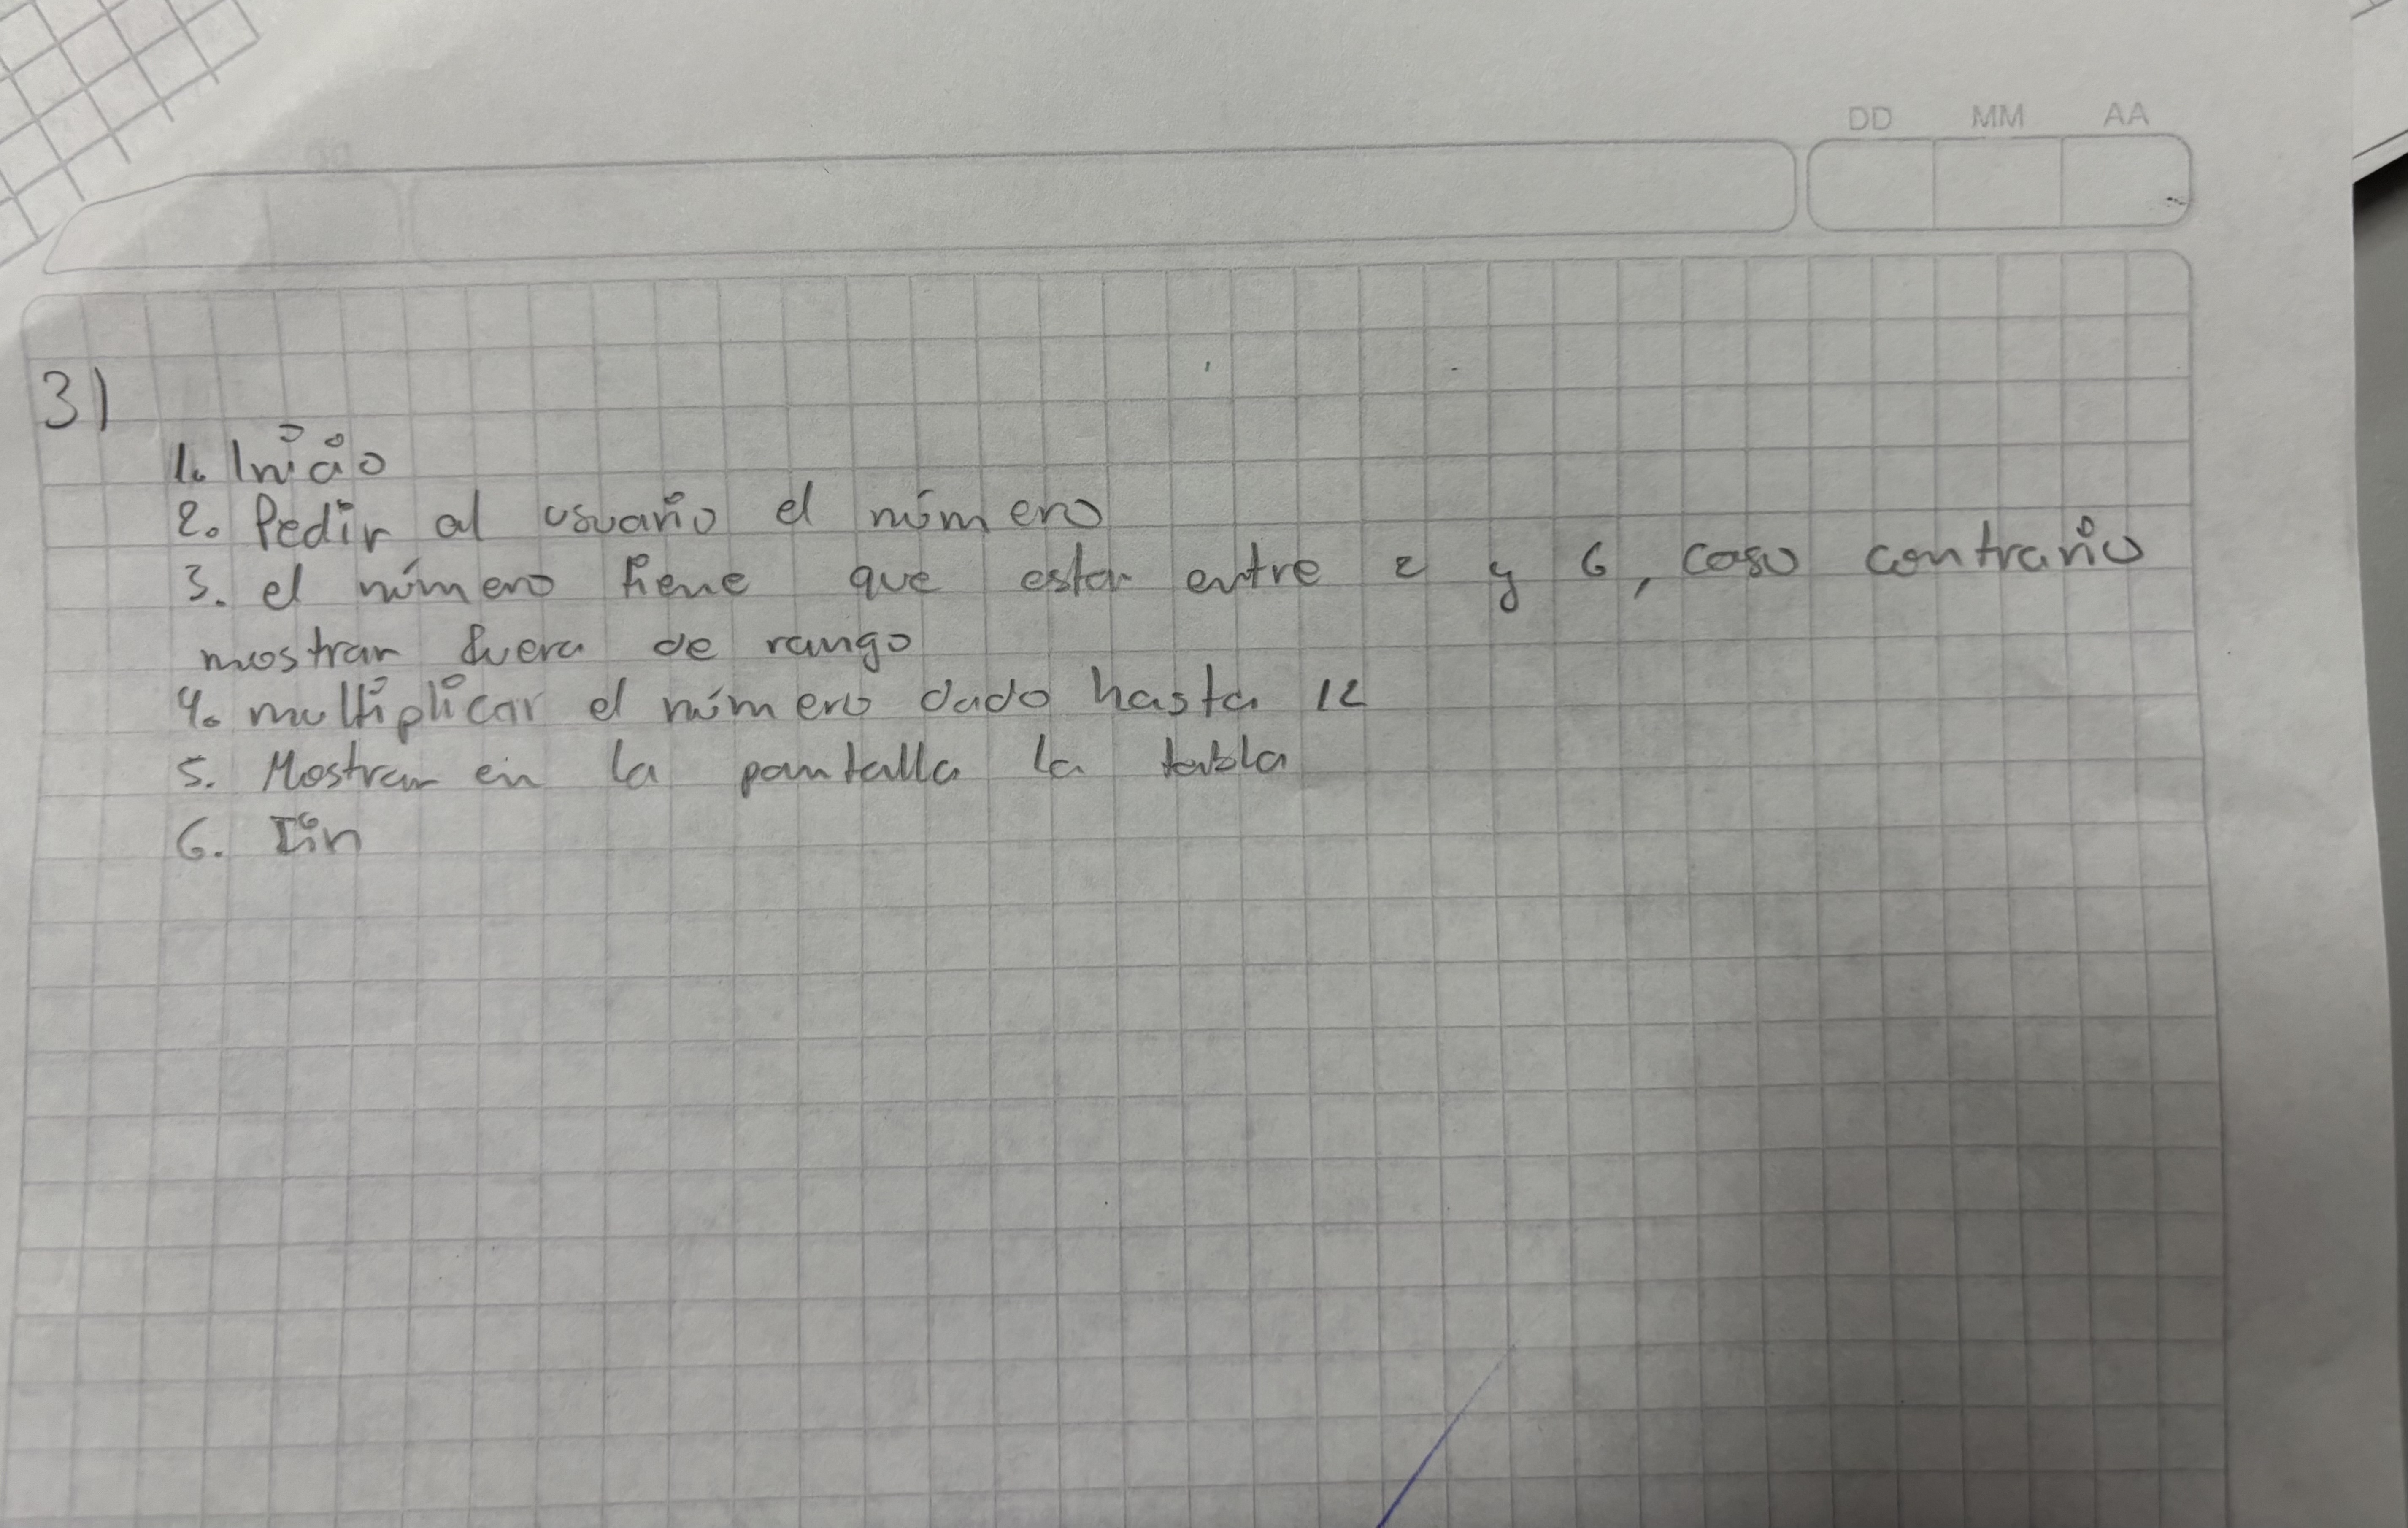 DD MM AA
3)
1. Inicio
2. Pedir al usuario el número
3. el número tiene que estar entre 2 y 6, caso contrario
mostrar fuera de rango
4. multiplicar el número dado hasta 12
5. Mostrar en la pantalla la tabla
6. Fin